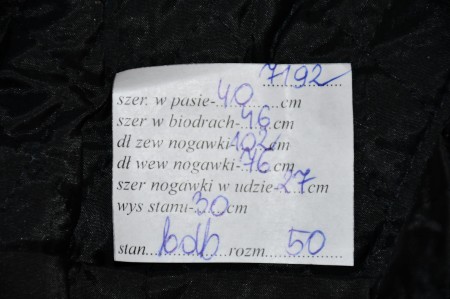 7192
szer. w pasie-40cm
szer w biodrach-46cm
dł zew nogawki102cm
dł wew nogawki-76cm
szer nogawki w udzie-27cm
wys stanu-30cm
stan...bdb...rozm...50